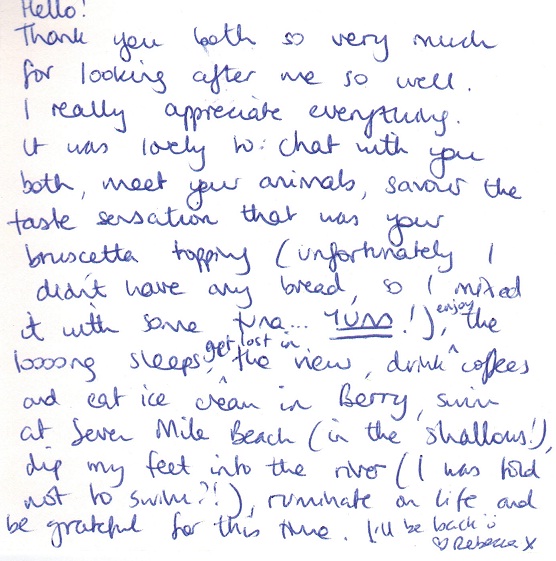 Hello!
Thank you both so very much
for looking after me so well.
I really appreciate everything.
It was lovely to: chat with you
both, meet your animals, savour the
taste sensation that was your
bruscetta topping (unfortunately I
didn't have any bread, so I mixed
it with some tuna... YUM!), enjoy the
loooong sleeps, get lost in the view, drink coffees
and eat ice cream in Berry, swim
at Seven Mile Beach (in the shallows!),
dip my feet into the river (I was told
not to swim?!), ruminate on life and
be grateful for this time. I'll be back :)
♡ Rebecca X